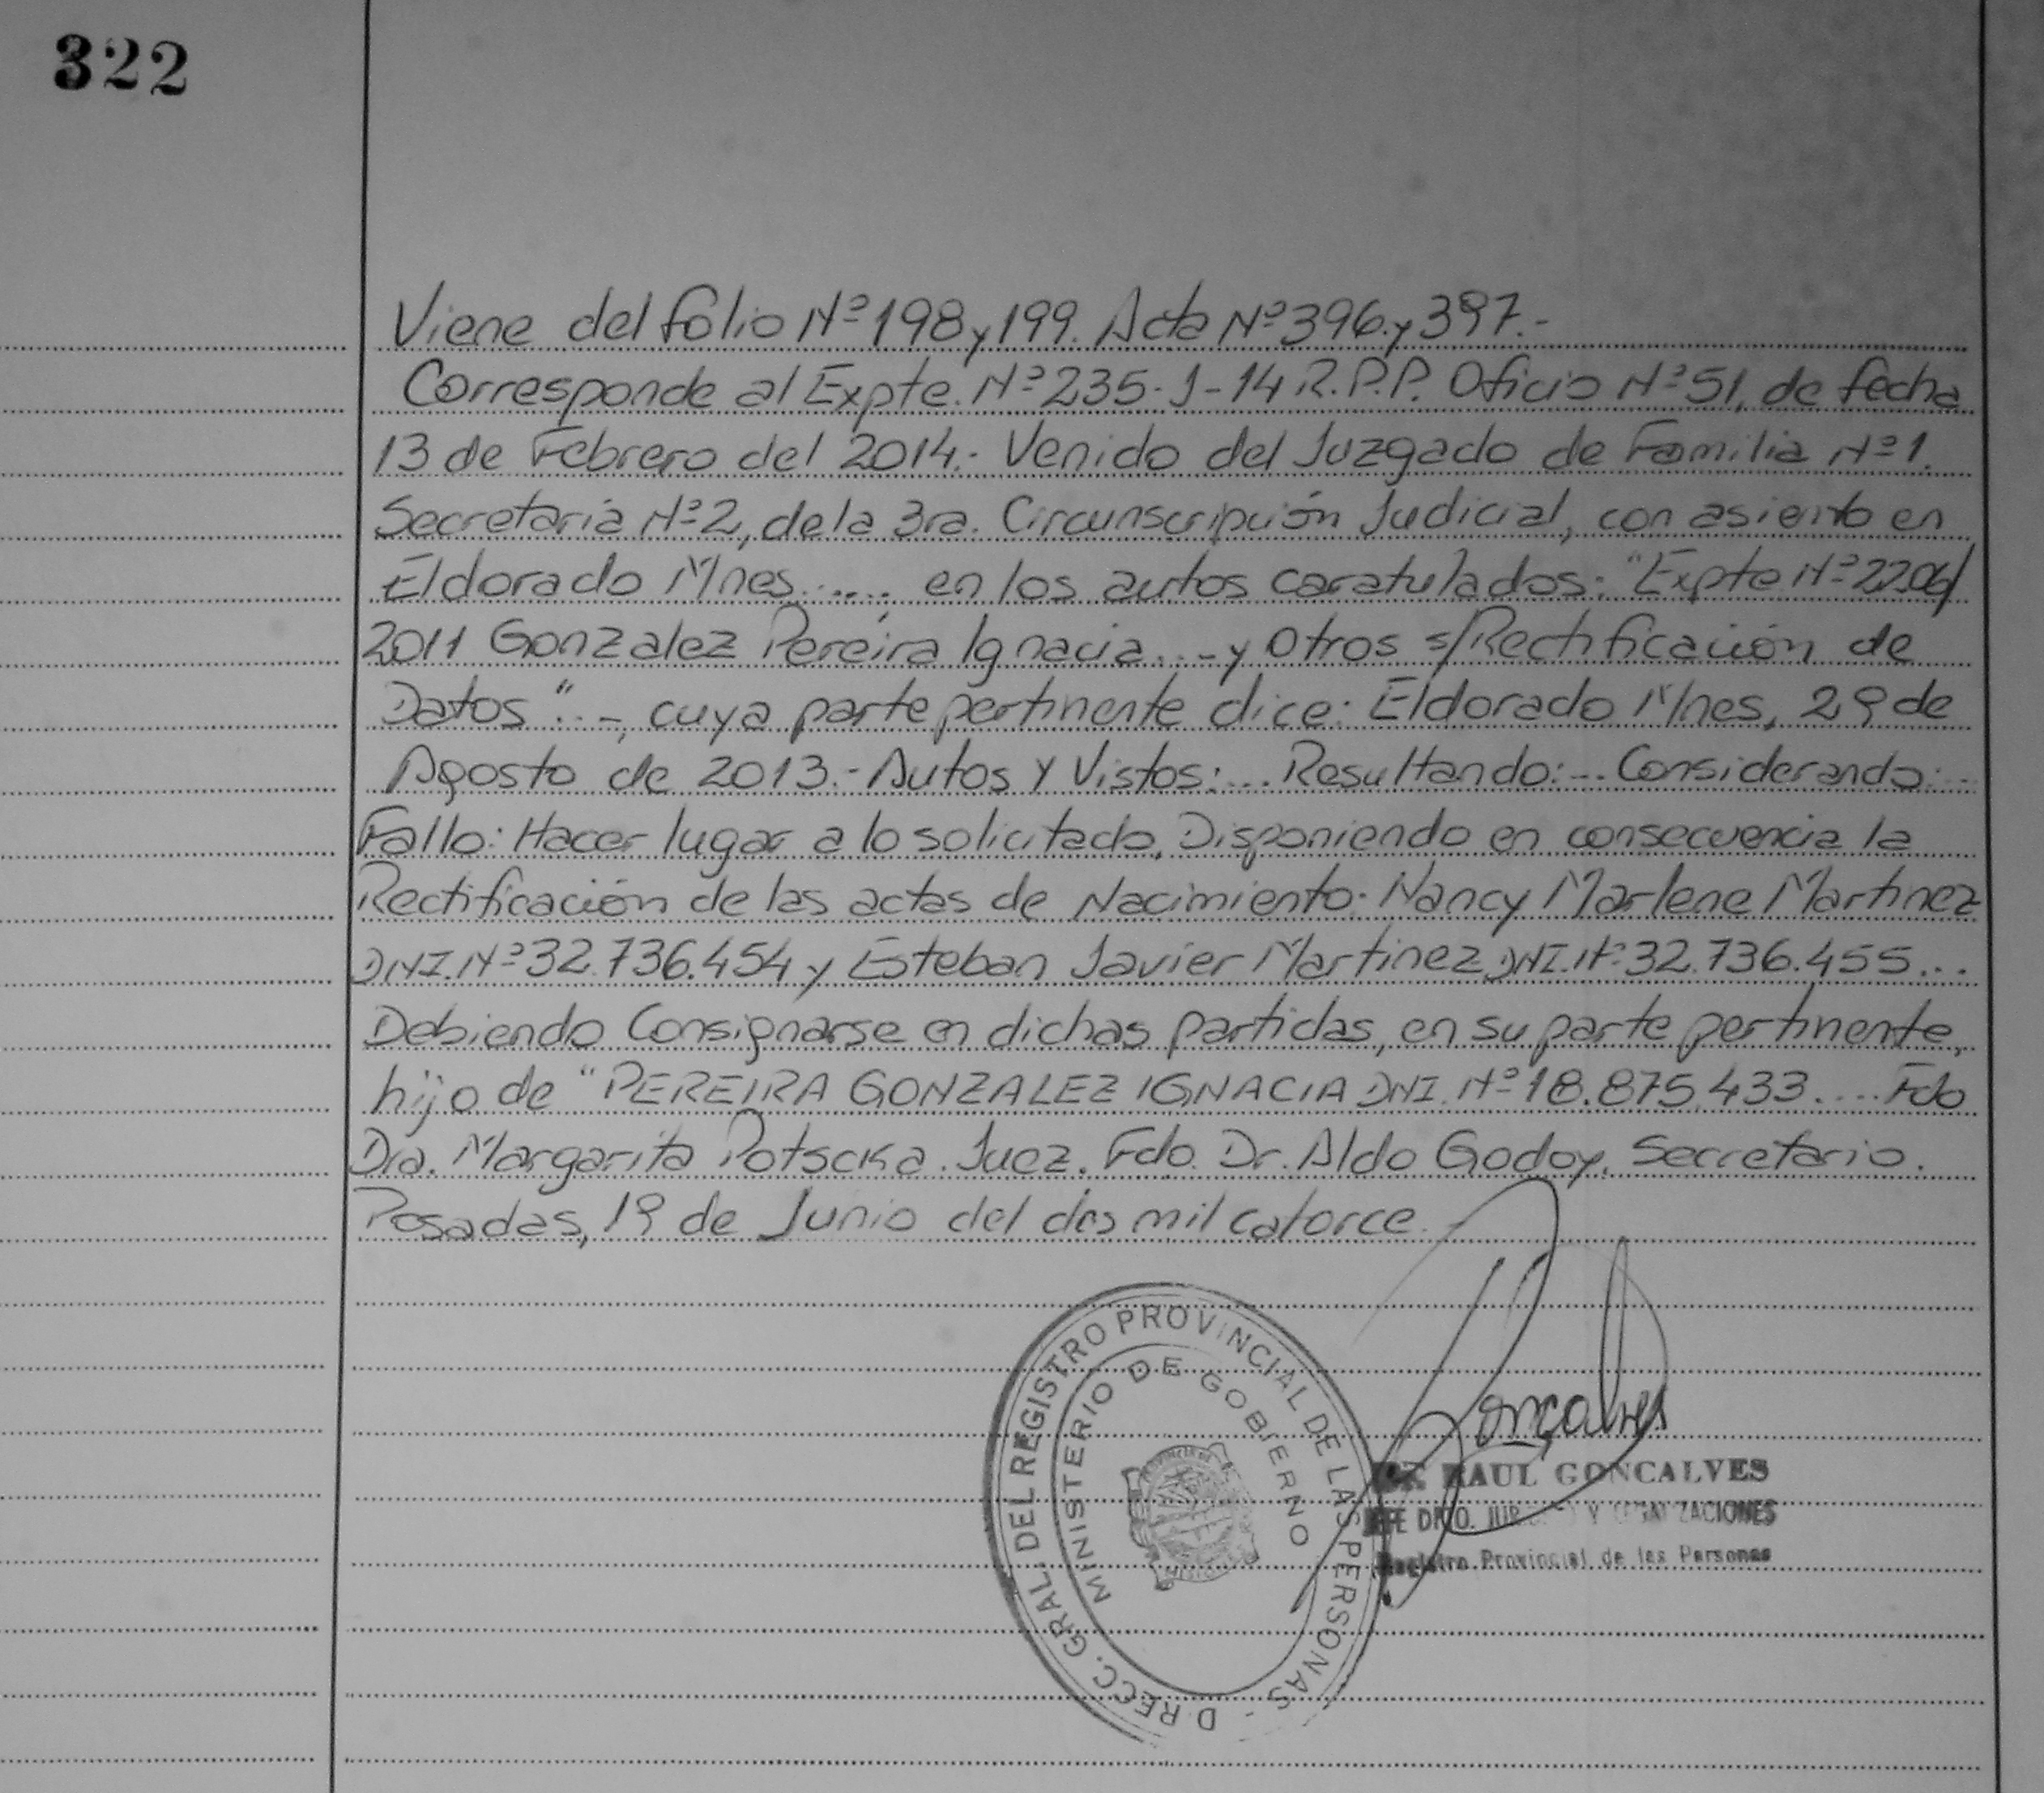 322
Viene del folio Nº 198 y 199. Acta Nº 396. y 397.-
Corresponde al Expte. Nº 235-J-14 R.P.P. Oficio Nº 51, de fecha
13 de Febrero del 2014.- Venido del Juzgado de Familia Nº 1.
Secretaria Nº 2, de la 3ra. Circunscripción Judicial, con asiento en
Eldorado Mnes..... en los autos caratulados: "Expte Nº 2206/
2011 Gonzalez Pereira Ignacia...- y Otros s/Rectificación de
Datos"..-, cuya parte pertinente dice: Eldorado Mnes, 29 de
Agosto de 2013.- Autos y Vistos:... Resultando:... Considerando:...
Fallo: Hacer lugar a lo solicitado. Disponiendo en consecuencia la
Rectificación de las actas de Nacimiento: Nancy Marlene Martinez
DNI. Nº 32.736.454 y Esteban Javier Martinez DNI. Nº 32.736.455...
Debiendo Consignarse en dichas partidas, en su parte pertinente,
hijo de "PEREIRA GONZALEZ IGNACIA DNI. Nº 18.875.433.... Fdo
Dra. Margarita Potscka. Juez. Fdo. Dr. Aldo Godoy. Secretario.
Posadas, 19 de Junio del dos mil catorce.
DIRECC. GRAL. DEL REGISTRO PROVINCIAL DE LAS PERSONAS -
MINISTERIO DE GOBIERNO
Goncalves
RAUL GONCALVES
DPTO. Y
Registro Provincial de las Personas